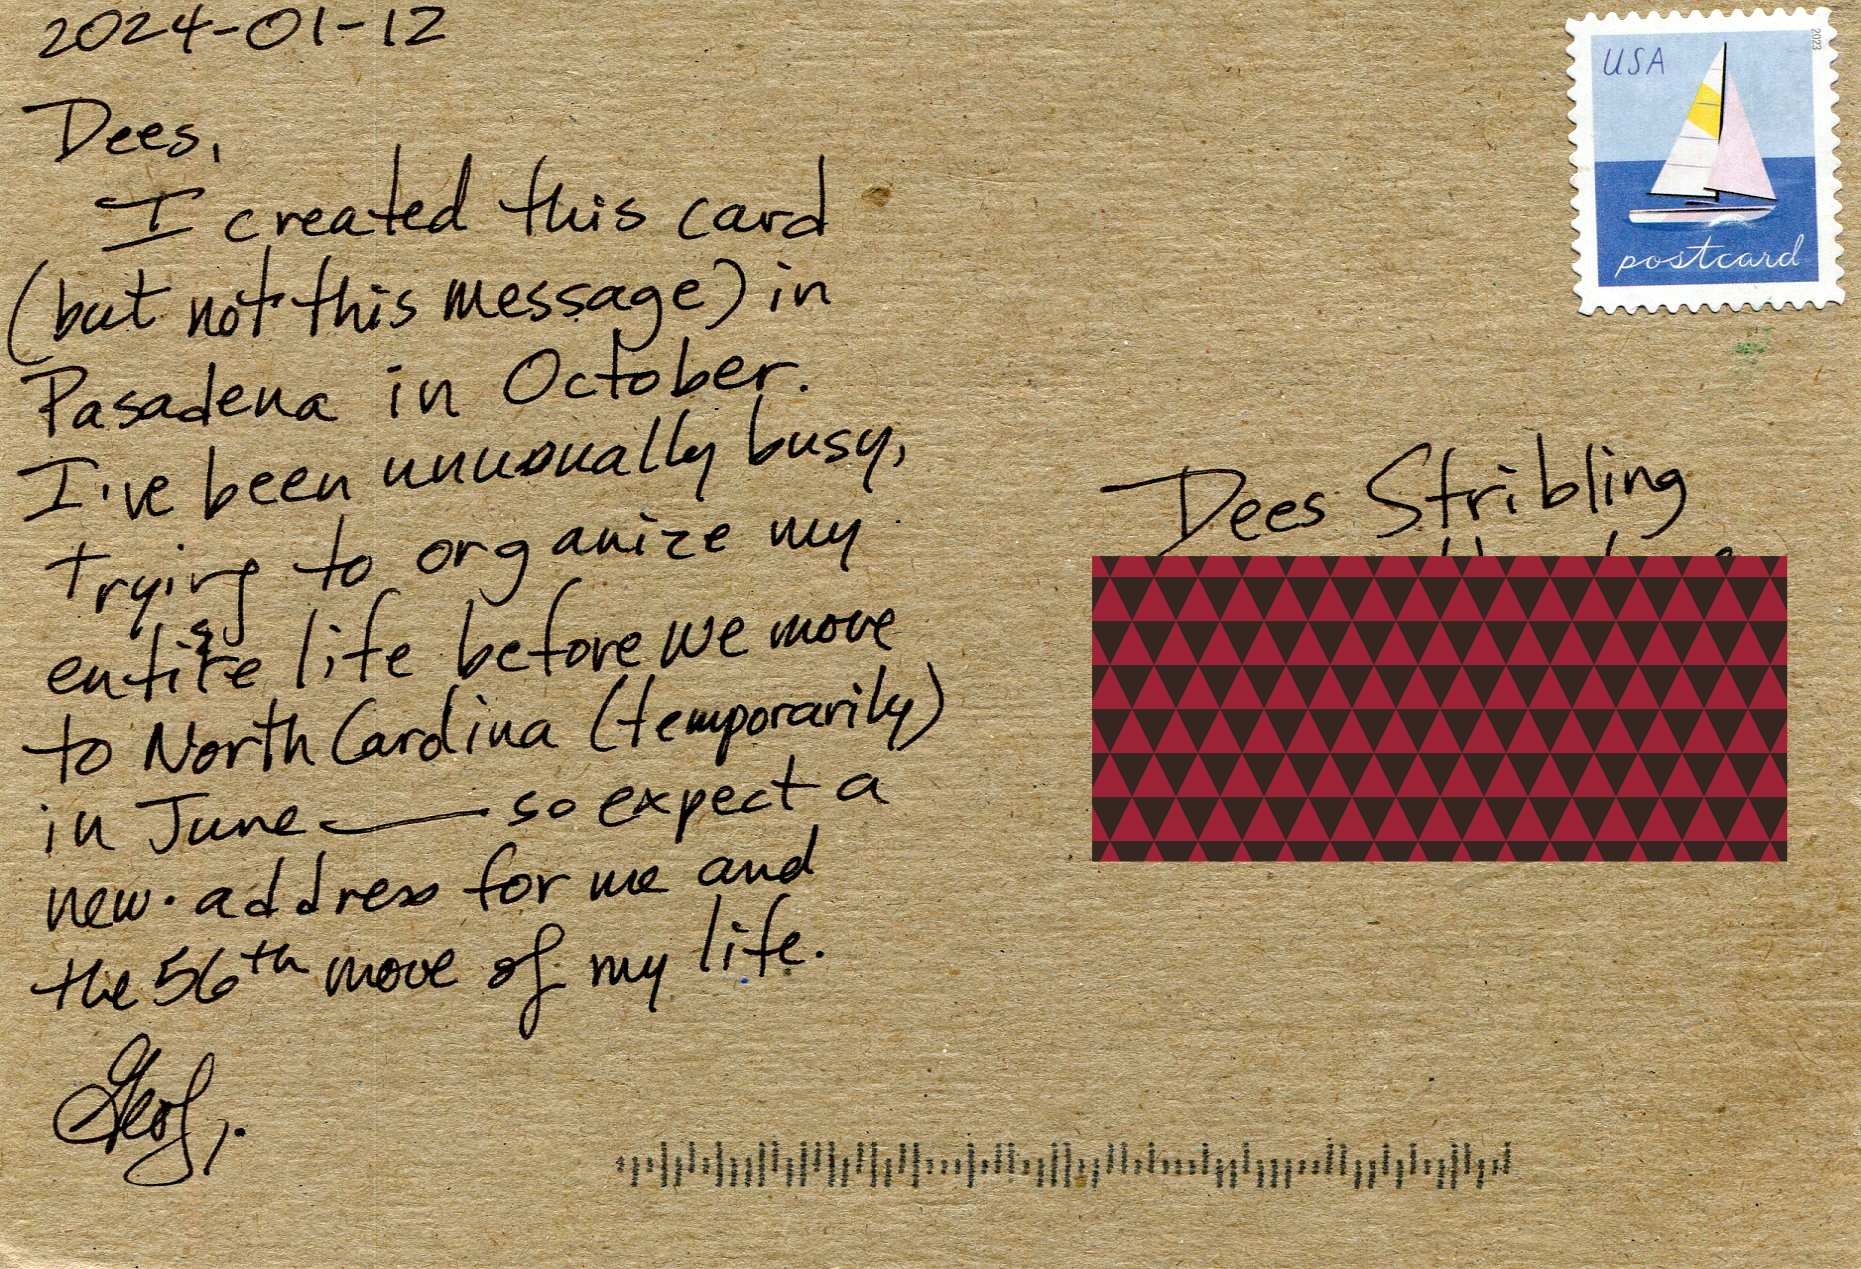 2024-01-12
Dees,
I created this card
(but not this message) in
Pasadena in October.
I've been unusually busy,
trying to organize my
entire life before we move
to North Carolina (temporarily)
in June — so expect a
new address for me and
the 56th move of my life.
Geof,
USA
2023
postcard
Dees Stribling